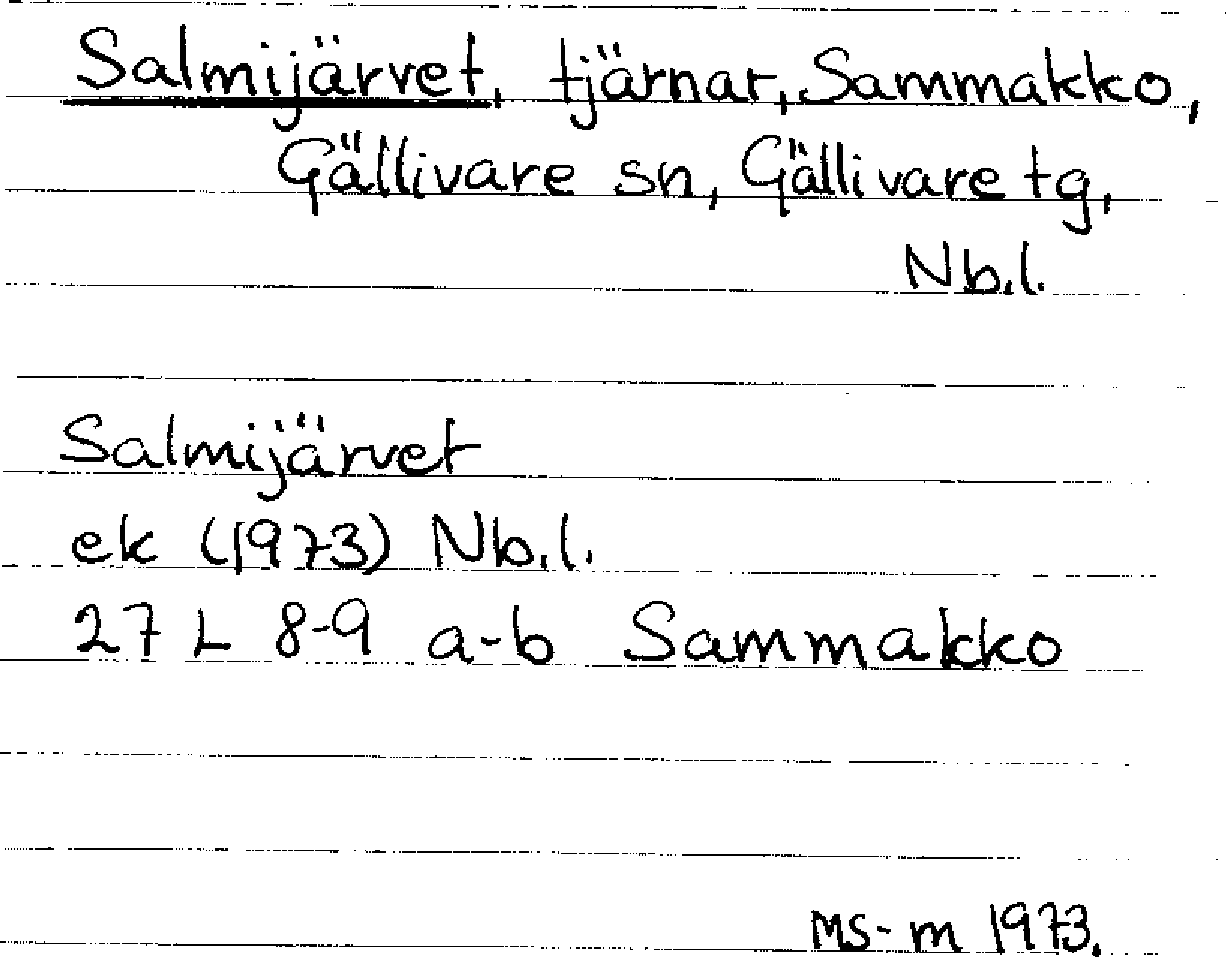 Salmijärvet, tjärnar, Sammakko,
Gällivare sn, Gällivare tg,
Nb.l.
Salmijärvet
ek (1973) Nb.l.
27 L 8-9 a-b Sammakko
MS-m 1973.